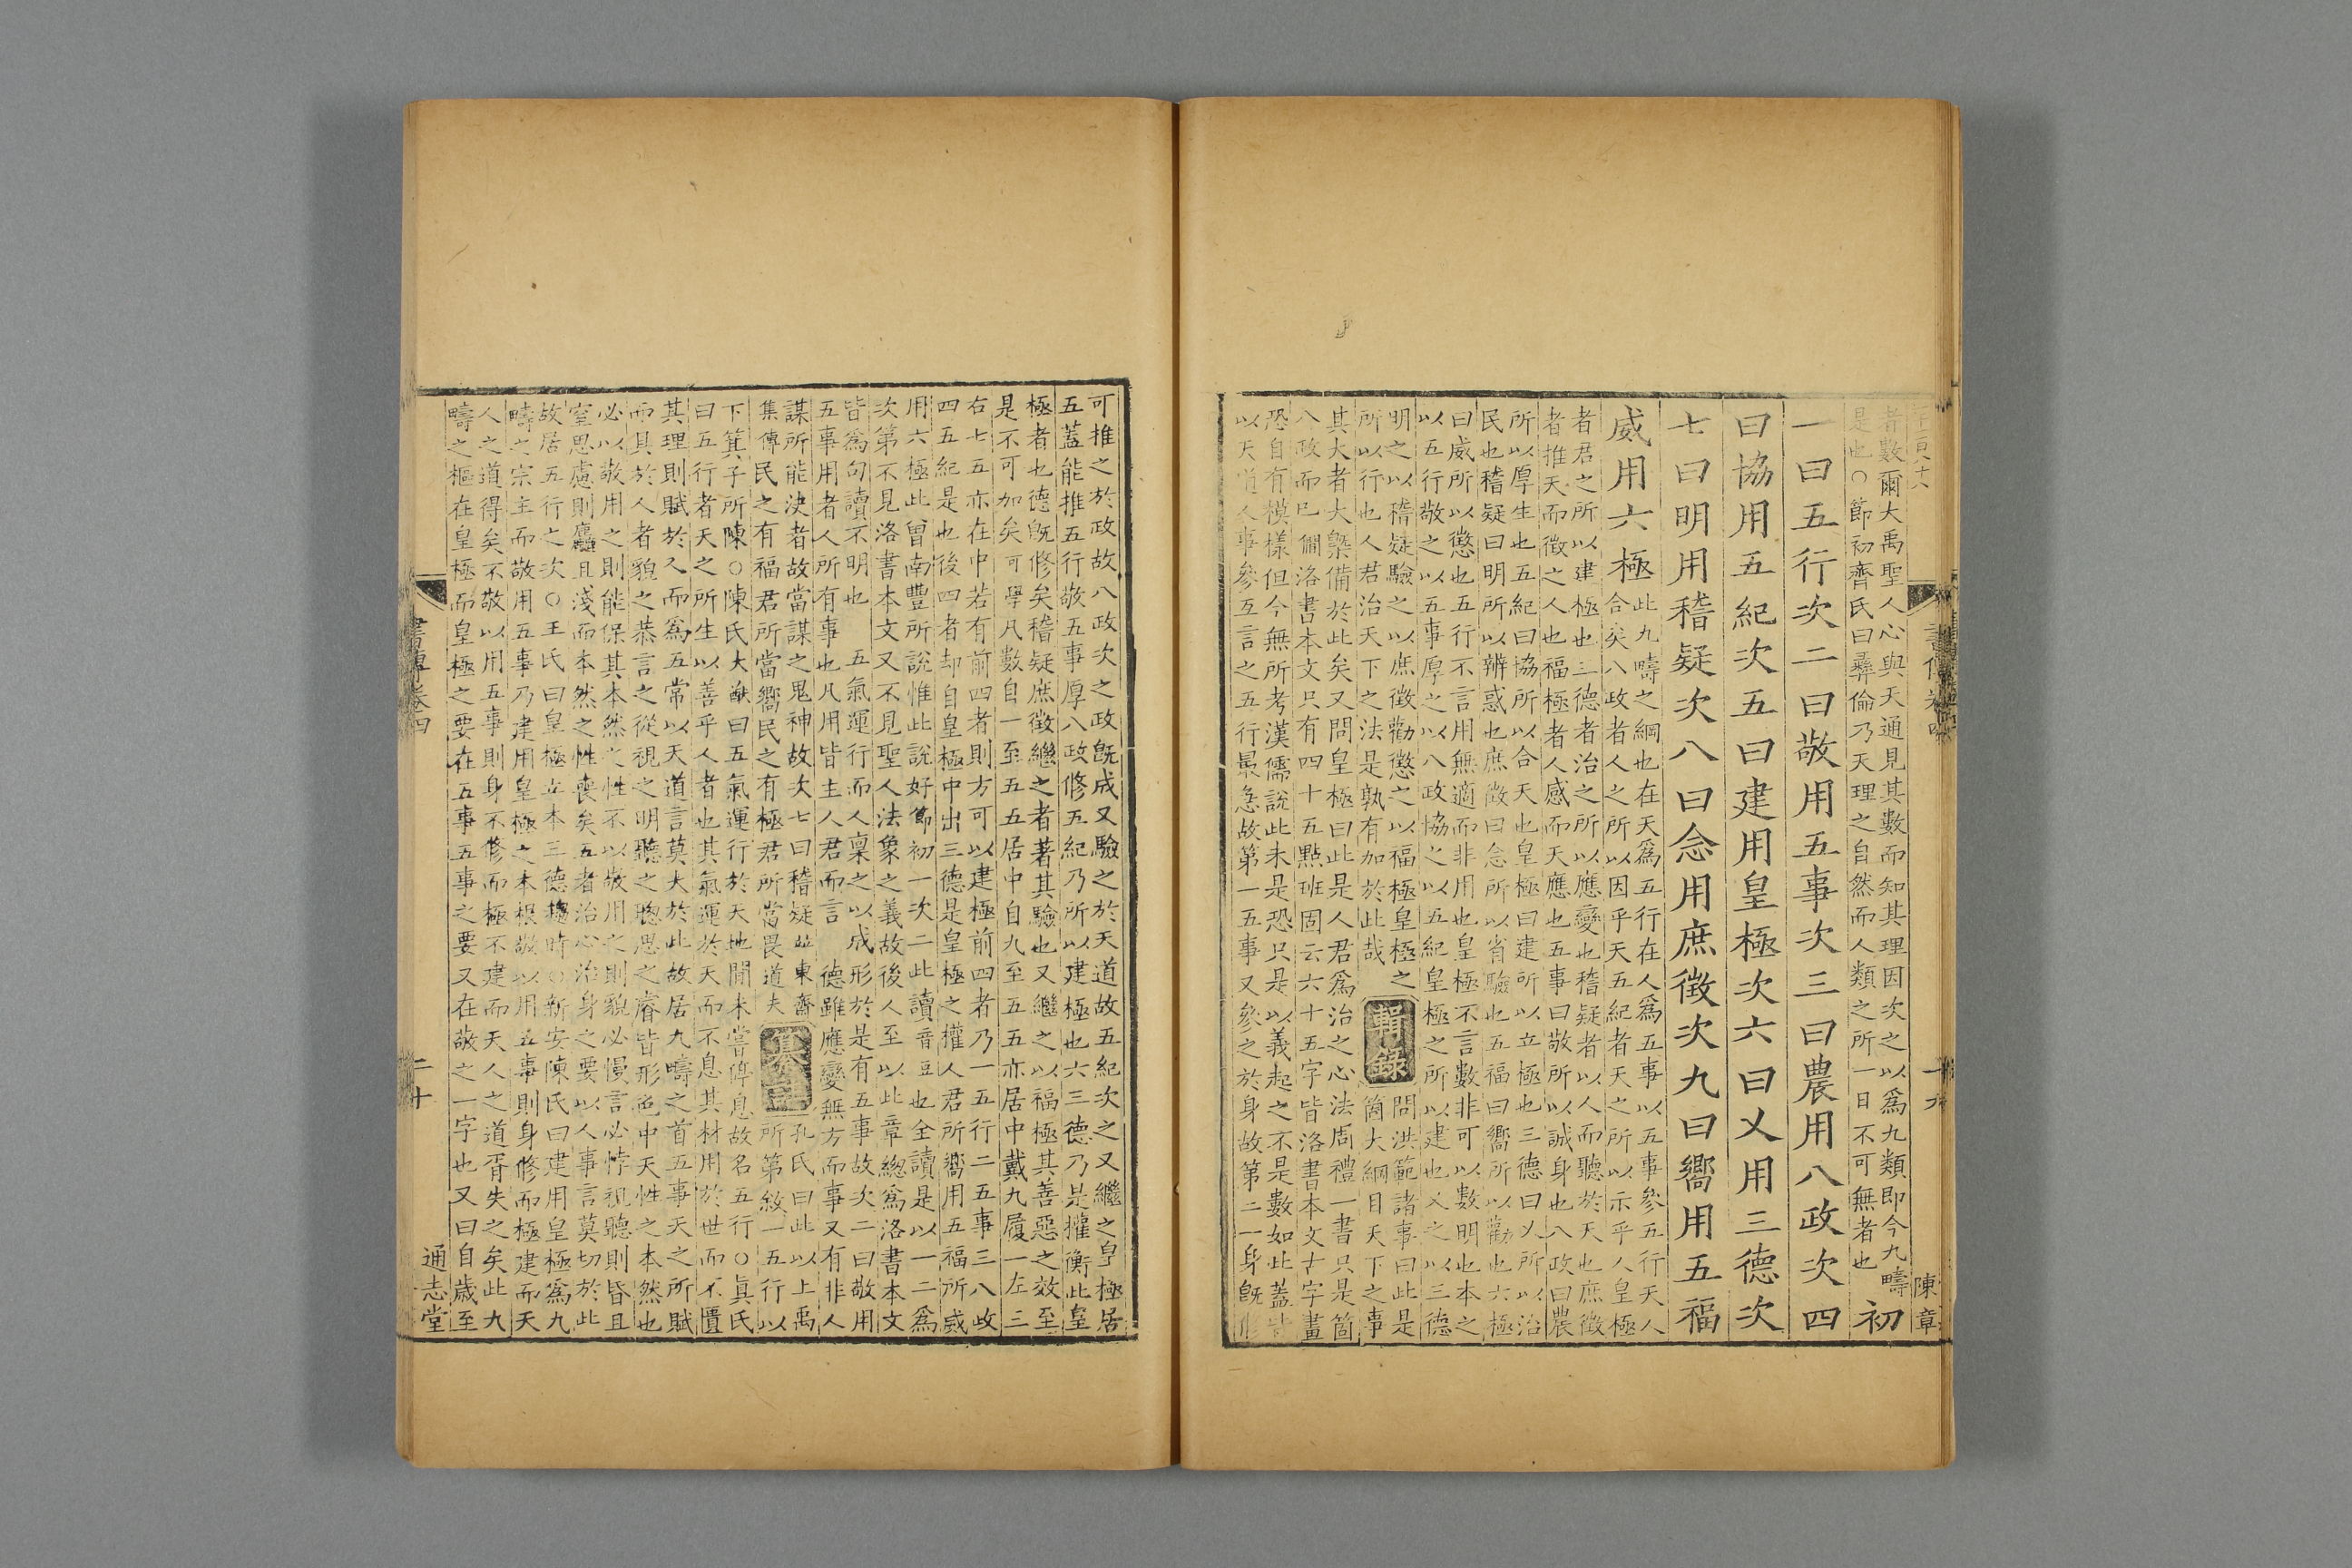 者數爾大禹聖人心與天通見其數而知其理因次之以爲九類即今九疇
是也○節初齊氏曰彝倫乃天理之自然而人類之所一日不可無者也
初
一曰五行次二曰敬用五事次三曰農用八政次四
曰協用五紀次五曰建用皇極次六曰乂用三德次
七曰明用稽疑次八曰念用庶徵次九曰嚮用五福
威用六極
此九疇之綱也在天爲五行在人爲五事以五事參五行天人
合矣八政者人之所以因乎天五紀者天之所以示乎人皇極
者君之所以建極也三德者治之所以應變也稽疑者以人而聽於天也庶徵
者推天而徵之人也福極者人感而天應也五事曰敬所以誠身也八政曰農
所以厚生也五紀曰協所以合天也皇極曰建所以立極也三德曰乂所以治
民也稽疑曰明所以辨惑也庶徵曰念所以省驗也五福曰嚮所以勸也六極
曰威所以懲也五行不言用無適而非用也皇極不言數非可以數明也本之
以五行敬之以五事厚之以八政協之以五紀皇極之所以建也乂之以三德
明之以稽疑驗之以庶徵勸懲之以福極皇極之
所以行也人君治天下之法是孰有加於此哉
輯錄
問洪範諸事曰此是
箇大綱目天下之事
其大者大槩備於此矣又問皇極曰此是人君爲治之心法周禮一書只是箇
八政而已僩洛書本文只有四十五點班固云六十五字皆洛書本文古字畫
恐自有模樣但今無所考漢儒說此未是恐只是以義起之不是數如此蓋皆
以天道人事參互言之五行最急故第一五事又參之於身故第二一身旣修
書傳卷四
十九
陳章
可推之於政故八政次之政旣成又驗之於天道故五紀次之又繼之皇極居
五蓋能推五行敬五事厚八政修五紀乃所以建極也六三德乃是權衡此皇
極者也德旣修矣稽疑庶徵繼之者著其驗也又繼之以福極其善惡之效至
是不可加矣可學凡數自一至五五居中自九至五五亦居中戴九履一左三
右七五亦在中若有前四者則方可以建極前四者乃一五行二五事三八政
四五紀是也後四者却自皇極中出三德是皇極之權人君所嚮用五福所威
用六極此曾南豐所說惟此說好節初一次二此讀音豆也全讀是以一二爲
次第不見洛書本文又不見聖人法象之義故後人至以此章總爲洛書本文
皆爲句讀不明也 五氣運行而人稟之以成形於是有五事故次二曰敬用
五事用者人所有事也凡用皆主人君而言 德雖應變無方而事又有非人
謀所能決者故當謀之鬼神故次七曰稽疑並東齋
集傳民之有福君所當嚮民之有極君所當畏道夫
纂註
孔氏曰此以上禹
所第敘一五行以
下箕子所陳○陳氏大猷曰五氣運行於天地閒未嘗停息故名五行○眞氏
曰五行者天之所生以善乎人者也其氣運於天而不息其材用於世而不匱
其理則賦於人而爲五常以天道言莫大於此故居九疇之首五事天之所賦
而其於人者貌之恭言之從視之明聽之聰思之睿皆形色中天性之本然也
必以敬用之則能保其本然之性不以敬用之則貌必慢言必悖視聽則昏且
窒思慮則麤且淺而本然之性喪矣五者治心治身之要以人事言莫切於此
故居五行之次○王氏曰皇極立本三德趨時○新安陳氏曰建用皇極爲九
疇之宗主而敬用五事乃建用皇極之本根敬以用五事則身修而極建而天
人之道得矣不敬以用五事則身不修而極不建而天人之道胥失之矣此九
疇之樞在皇極而皇極之要在五事五事之要又在敬之一字也又曰自歲至
書傳卷四
二十
通志堂